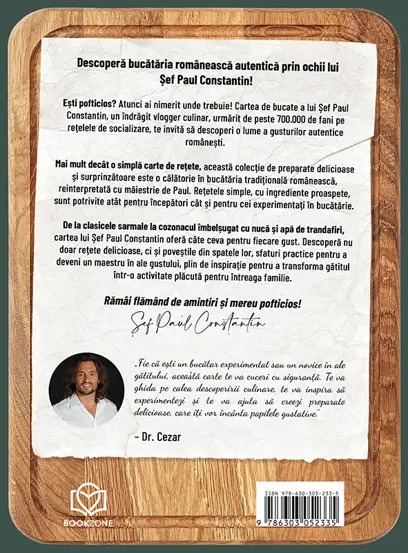 Descoperă bucătăria românească autentică prin ochii lui
Șef Paul Constantin!
Ești pofticios? Atunci ai nimerit unde trebuie! Cartea de bucate a lui Șef Paul
Constantin, un îndrăgit vlogger culinar, urmărit de peste 700.000 de fani pe
rețelele de socializare, te invită să descoperi o lume a gusturilor autentice
românești.
Mai mult decât o simplă carte de rețete, această colecție de preparate delicioase
și surprinzătoare este o călătorie în bucătăria tradițională românească,
reinterpretată cu măiestrie de Paul. Rețetele simple, cu ingrediente proaspete,
sunt potrivite atât pentru începători cât și pentru cei experimentați în bucătărie.
De la clasicele sarmale la cozonacul îmbelșugat cu nucă și apă de trandafiri,
cartea lui Șef Paul Constantin oferă câte ceva pentru fiecare gust. Descoperă nu
doar rețete delicioase, ci și poveștile din spatele lor, sfaturi practice pentru a
deveni un maestru în ale gustului, plin de inspirație pentru a transforma gătitul
într-o activitate plăcută pentru întreaga familie.
Rămâi flămând de amintiri și mereu pofticios!
Șef Paul Constantin
„Fie că ești un bucătar experimentat sau un novice în ale
gătitului, această carte te va cuceri cu siguranță. Te va
ghida pe calea descoperirii culinare, te va inspira să
experimentezi și te va ajuta să creezi preparate
delicioase, care îți vor încânta papilele gustative.”
– Dr. Cezar
ISBN 978-630-305-233-5
9 786303 052335
BOOKZONE